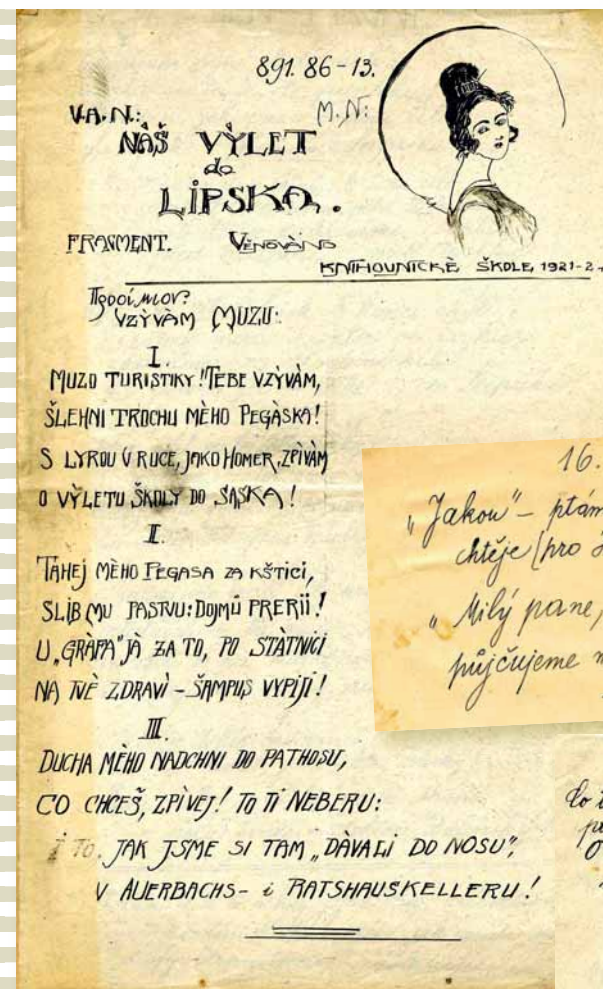 891. 86-13.
V.A.N.: M.N:
NÁŠ VÝLET
do
LIPSKA.
FRAGMENT. VĚNOVÁNO
KNIHOVNICKÉ ŠKOLE, 1921-2.
VZÝVÁM MUZU:
I.
MUZO TURISTIKY! TEBE VZÝVÁM,
ŠLEHNI TROCHU MÉHO PEGÁSKA!
S LYROU V RUCE, JAKO HOMER, ZPÍVÁM
O VÝLETU ŠKOLY DO SASKA!
II.
TÁHEJ MÉHO PEGASA ZA KŠTICI,
SLIB MU PASTVU: DOJMŮ PRERII!
U „GRÁFA" JÁ ZA TO, PO STÁTNICI
NA TVÉ ZDRAVÍ – ŠAMPUS VYPIJI!
III.
DUCHA MÉHO NADCHNI DO PATHOSU,
CO CHCEŠ, ZPÍVEJ! TO TI NEBERU:
I TO, JAK JSME SI TAM „DÁVALI DO NOSU",
V AUERBACHS- i RATSHAUSKELLERU!
16.
„Jakou" – ptám
chtěje (pro
„Milý pane,
půjčujeme